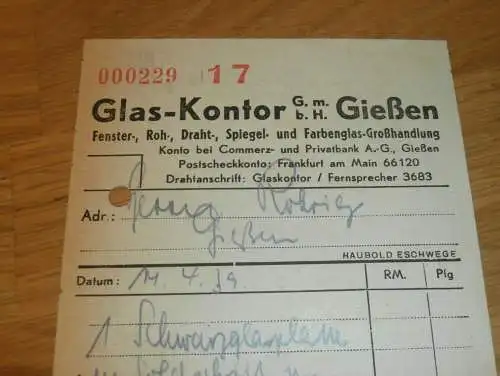 000229 17
Glas-Kontor G. m. b. H. Gießen
Fenster-, Roh-, Draht-, Spiegel- und Farbenglas-Großhandlung
Konto bei Commerz- und Privatbank A.-G., Gießen
Postscheckkonto: Frankfurt am Main 66120
Drahtanschrift: Glaskontor / Fernsprecher 3683
Adr.:
Gießen
HAUBOLD ESCHWEGE
Datum: 14. 4. 39. RM. Pfg
1 Schwarzglasplatte